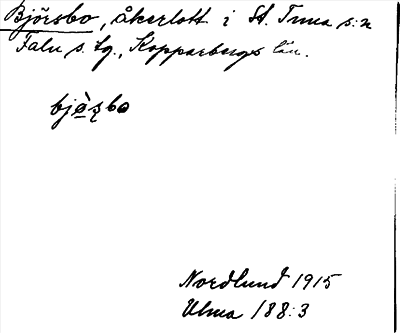 Björsbo, åkerlott i St. Tuna s:n
Falu s. tg., Kopparbergs län.
bjö̀ṣbo
Nordlund 1915
Ulma 188:3